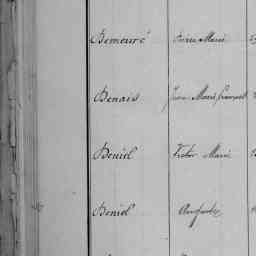 Bemeuré Pierre Marie
Benais Jean Marie François
Beniel Victor Marie
Beniel